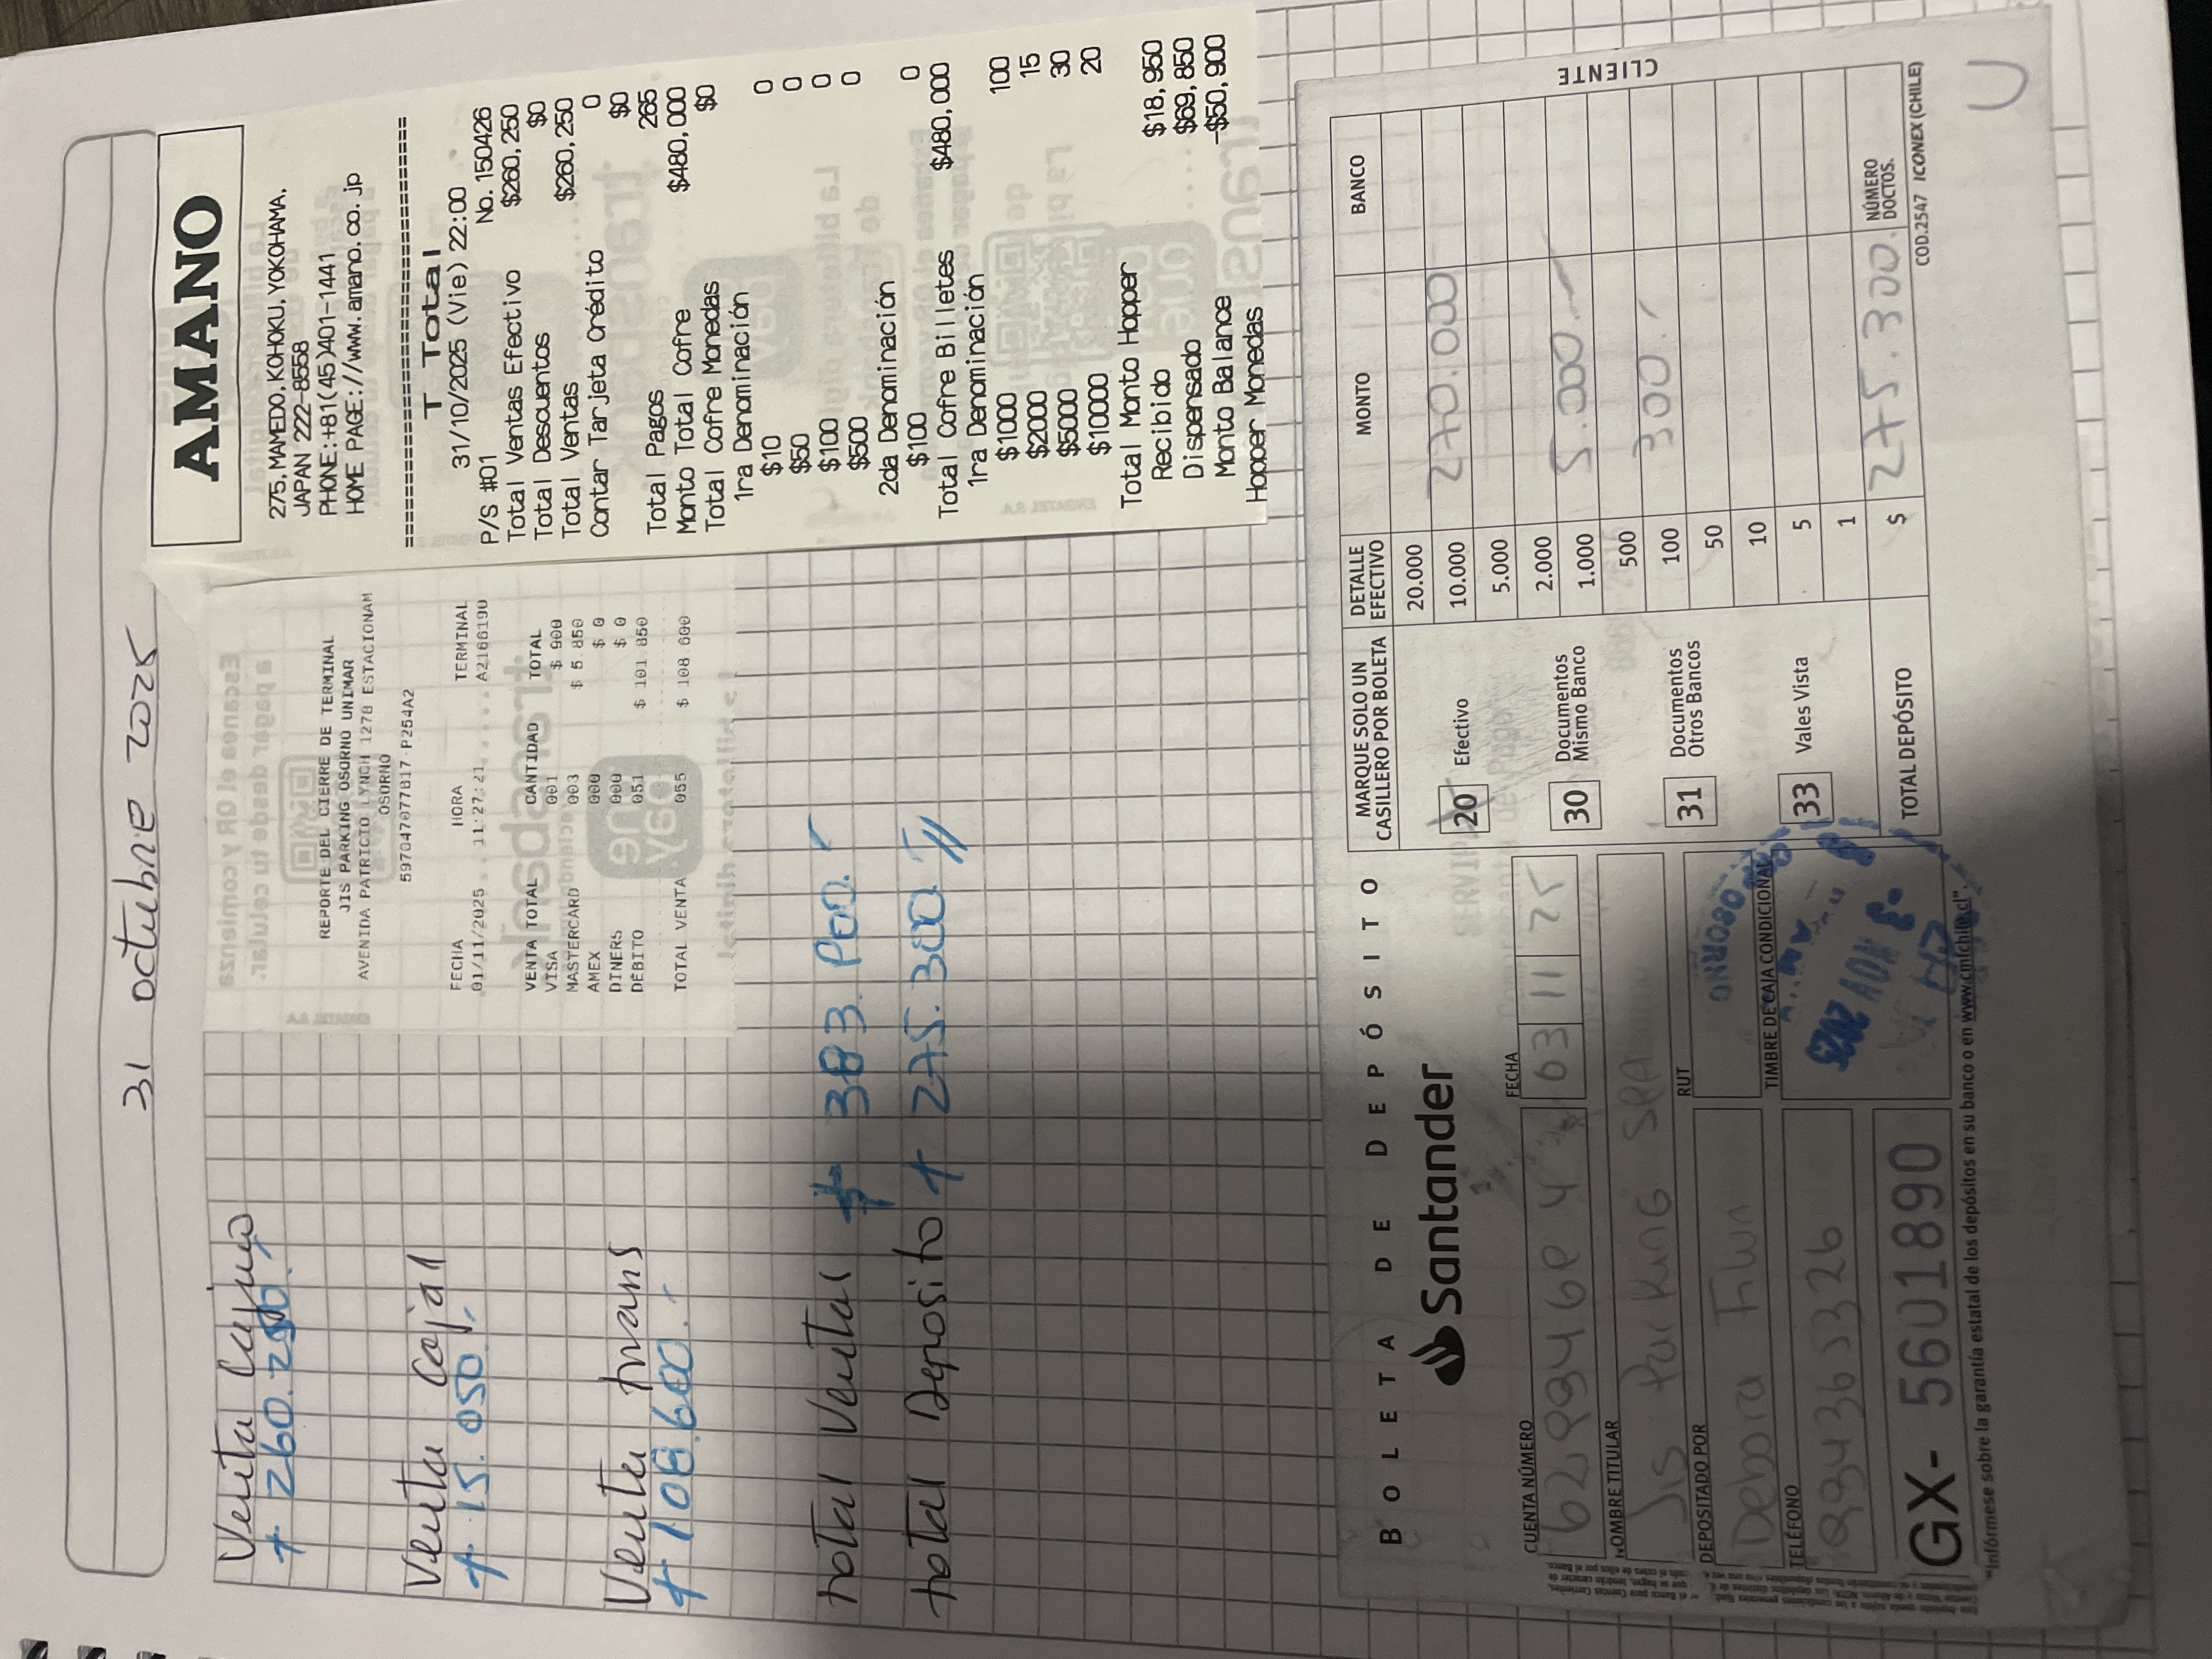 31 octubre 2025
Venta Cajero
$ 260.250.
Venta caja 1
$ 15.050.
Venta trans
$ 108.600.
total Ventas $ 383.900.
total Deposito $ 275.300
REPORTE DEL CIERRE DE TERMINAL
JIS PARKING OSORNO UNIMAR
AVENIDA PATRICIO LYNCH 1278 ESTACIONAM
OSORNO
597047077817-P254A2
FECHA HORA TERMINAL
01/11/2025 11:27:21 A2166190
VENTA TOTAL CANTIDAD TOTAL
VISA 001 $ 900
MASTERCARD 003 $ 5.850
AMEX 000 $ 0
DINERS 000 $ 0
DEBITO 051 $ 101.850
TOTAL VENTA 055 $ 108.600
AMANO
275,MAMEDO,KOHOKU,YOKOHAMA,
JAPAN 222-8558
PHONE:+81(45)401-1441
HOME PAGE://www.amano.co.jp
==============================
T Total
31/10/2025 (Vie) 22:00
P/S #01 No.150426
Total Ventas Efectivo $260,250
Total Descuentos $0
Total Ventas $260,250
Contar Tarjeta Crédito 0
$0
Total Pagos 265
Monto Total Cofre $480,000
Total Cofre Monedas $0
1ra Denominación
$10 0
$50 0
$100 0
$500 0
2da Denominación
$100 0
Total Cofre Billetes $480,000
1ra Denominación
$1000 100
$2000 15
$5000 30
$10000 20
Total Monto Hopper
Recibido $18,950
Dispensado $69,850
Monto Balance -$50,900
Hopper Monedas
BOLETA DE DEPÓSITO
Santander
CUENTA NÚMERO
FECHA
03 11 25
NOMBRE TITULAR
Jis Parking SPA
RUT
DEPOSITADO POR
Debora
TELÉFONO
TIMBRE DE CAJA CONDICIONAL
OSORNO
3 NOV 2025
GX- 5601890
"Infórmese sobre la garantía estatal de los depósitos en su banco o en www.cmfchile.cl".
MARQUE SOLO UN
CASILLERO POR BOLETA
20 Efectivo
30 Documentos
Mismo Banco
31 Documentos
Otros Bancos
33 Vales Vista
DETALLE
EFECTIVO MONTO BANCO
20.000
10.000 270.000
5.000
2.000
1.000 5.000.
500
100 300.
50
10
5
1
TOTAL DEPÓSITO $ 275.300. NÚMERO
DOCTOS.
COD.2547 ICONEX (CHILE)
CLIENTE